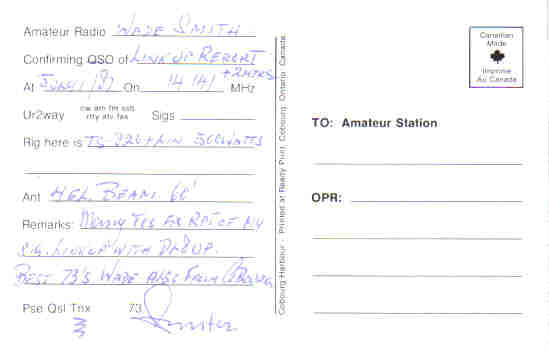 Amateur Radio WADE SMITH
Confirming QSO of LINK UP REPORT
+ 2 MTRS
At On 14 141 MHz
Ur2way cw am fm ssb rtty atv fax Sigs
Rig here is TS 820 + LIN 500 WATTS
Ant 4 EL. BEAM 60'
Remarks: Many TKS FR RPT OF MY
SIG. LINK UP WITH
BEST 73'S WADE ALSO FROM
Pse Qsl Tnx 73
Cobourg Harbour - Printed at Ready Print, Cobourg, Ontario, Canada
Canadian
Made
Imprimé
Au Canada
TO: Amateur Station
OPR: